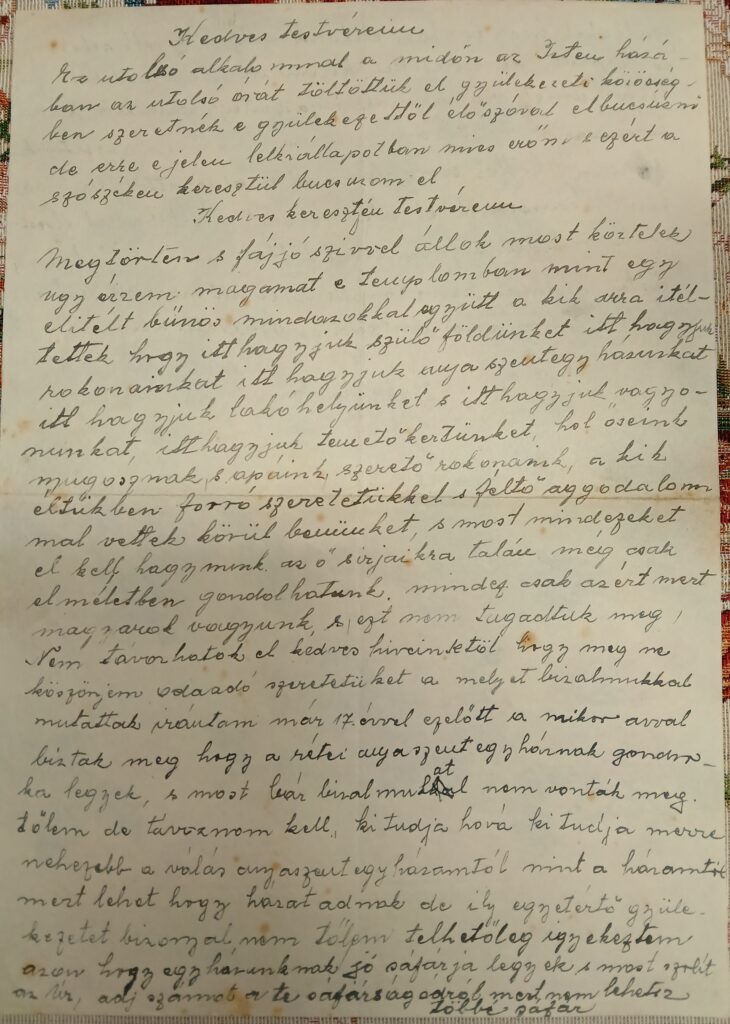 Kedves testvéreim
Ez utolsó alkalommal a midőn az Isten házá-
ban az utolsó órát töltöttük el gyülekezeti közösség-
ben szeretnék e gyülekezettől élőszóval elbucsuzni
de erre e jelen lelkiállapotban nincs erőm s ezért a
szószéken keresztül bucsuzom el
Kedves keresztén testvéreim
Megtörten s fájjó szivvel állok most köztetek
ugy érzem magamat e templomban mint egy
elitélt bűnös mindazokkal együtt a kik arra itél-
tettek hogy itt hagyjuk szülőföldünket itt hagyjuk
rokonainkat itt hagyjuk anyaszentegyházunkat
itt hagyjuk lakóhelyünket s itt hagyjuk vagyo-
nunkat, itt hagyjuk temetőkertünket, hol őseink
nyugosznak, s apáink, szerető rokonaink, a kik
éltükben forró szeretetükkel s féltő aggodalom
mal vettek körül bennünket, s most mindezeket
el kell hagynunk az ő sirjaikra talán még csak
elméletben gondolhatunk, mindez csak azért mert
magyarok vagyunk, s ezt nem tagadtuk meg,
Nem távozhatok el kedves hiveinktől hogy meg ne
köszönjem odaadó szeretetüket a melyet bizalmukkal
mutattak irántam már 17. évvel ezelőtt a mikor avval
biztak meg hogy a rétei anyaszentegyháznak gondno-
ka legyek, s most bár bizalmukat nem vonták meg
tőlem de távoznom kell, ki tudja hová ki tudja merre
nehezebb a válás anyaszentegyházamtól mint a házamtól
mert lehet hogy házat adnak de ily egyetértő gyüle-
kezetet bizonyal nem tőlem telhetőleg igyekeztem
azon hogy egyházunknak jó sáfárja legyek s most szólit
az Úr, adj számot a te sáfárságodról mert nem lehetsz
többé sáfár